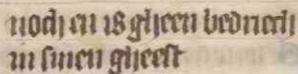 noch en is gheen bedriech
in sinen gheest